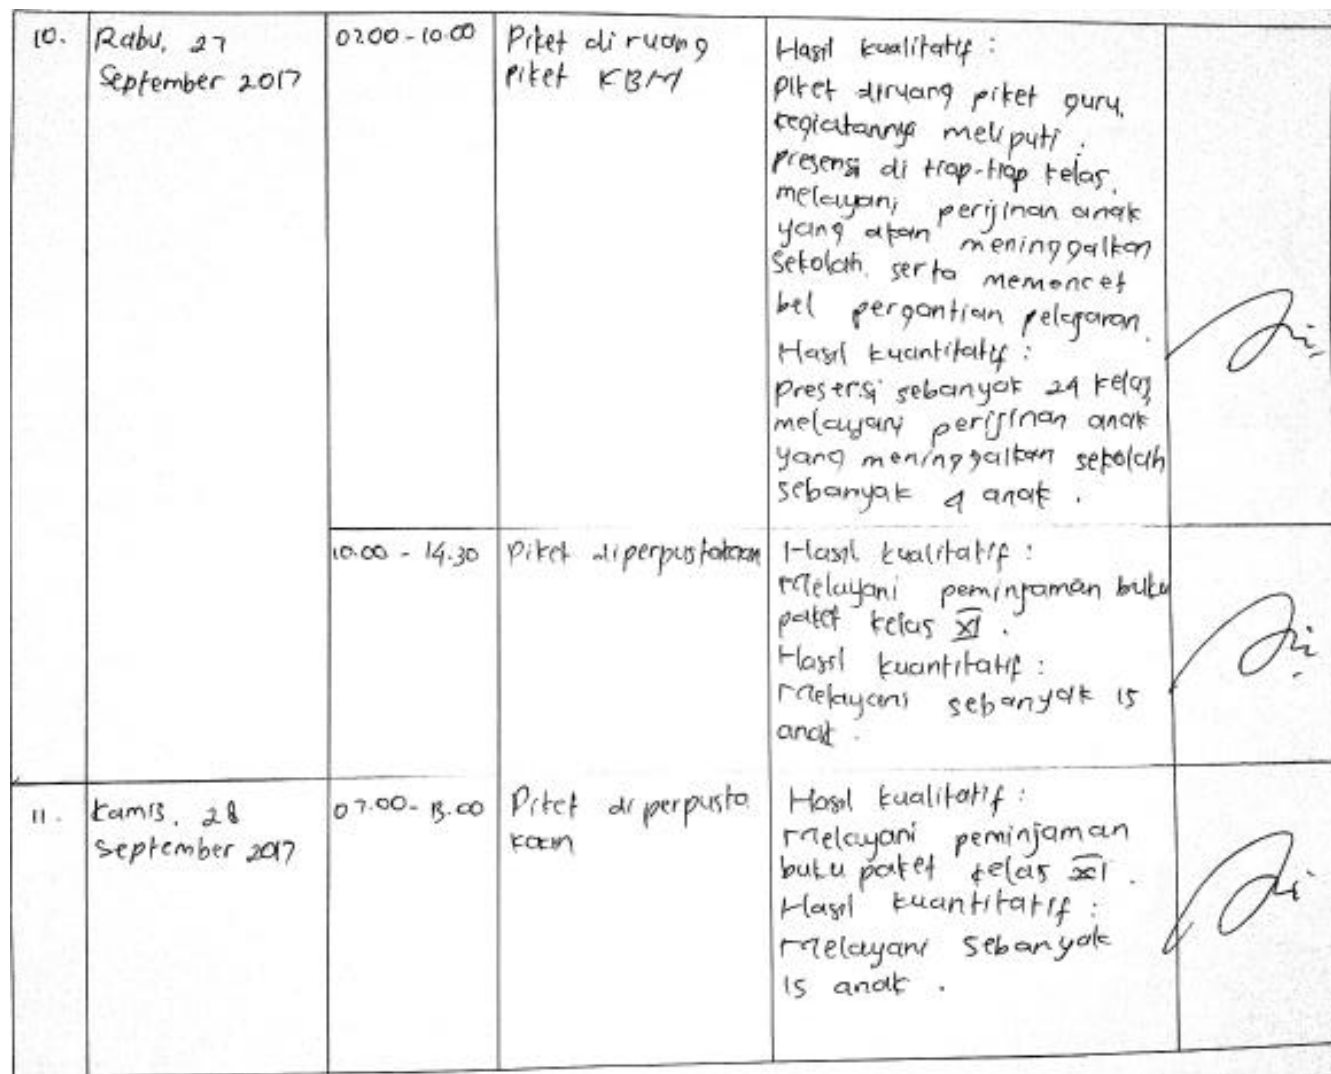 10.
Rabu, 27
September 2017
07.00 - 10.00
Piket di ruang
piket KBM
Hasil kualitatif :
Piket diruang piket guru,
kegiatannya meliputi :
presensi di tiap-tiap kelas,
melayani perijinan anak
yang akan meninggalkan
sekolah, serta memencet
bel pergantian pelajaran.
Hasil kuantitatif :
presensi sebanyak 24 kelas,
melayani perijinan anak
yang meninggalkan sekolah
sebanyak 4 anak .
10.00 - 14.30
Piket diperpustakaan
Hasil kualitatif :
Melayani peminjaman buku
paket kelas XI .
Hasil kuantitatif :
Melayani sebanyak 15
anak .
11.
Kamis, 28
September 2017
07.00 - 13.00
Piket diperpusta
kaan
Hasil kualitatif :
Melayani peminjaman
buku paket kelas XI .
Hasil kuantitatif :
Melayani sebanyak
15 anak .